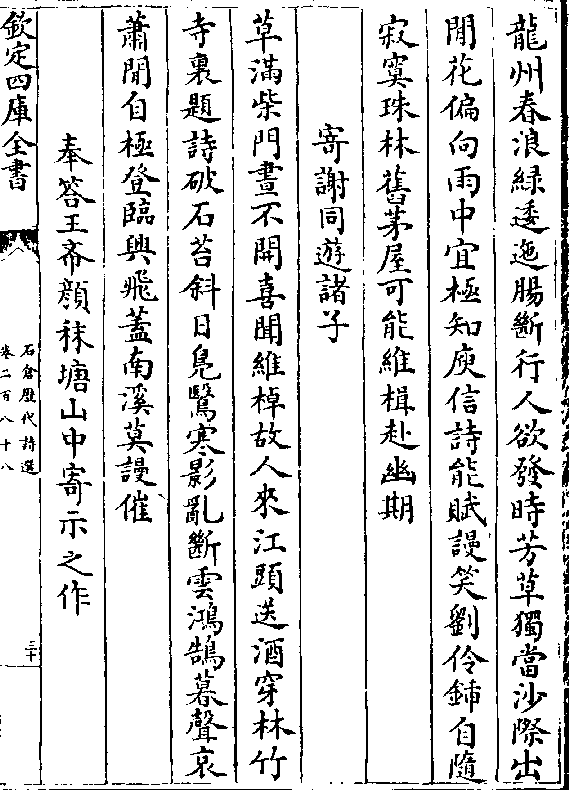 龍州春浪綠逶迤腸斷行人欲發時芳草獨當沙際出
閒花偏向雨中宜極知庾信詩能賦謾笑劉伶鍤自隨
寂寞珠林舊茅屋可能維楫赴幽期
寄謝同遊諸子
草滿柴門晝不開喜聞維棹故人來江頭送酒穿林竹
寺裏題詩破石苔斜日鳬鷖寒影亂斷雲鴻鵠暮聲哀
蕭閒自極登臨興飛蓋南溪莫謾催
奉答王希顔秣塘山中寄示之作
欽定四庫全書
石倉歷代詩選
卷二百八十八
三十